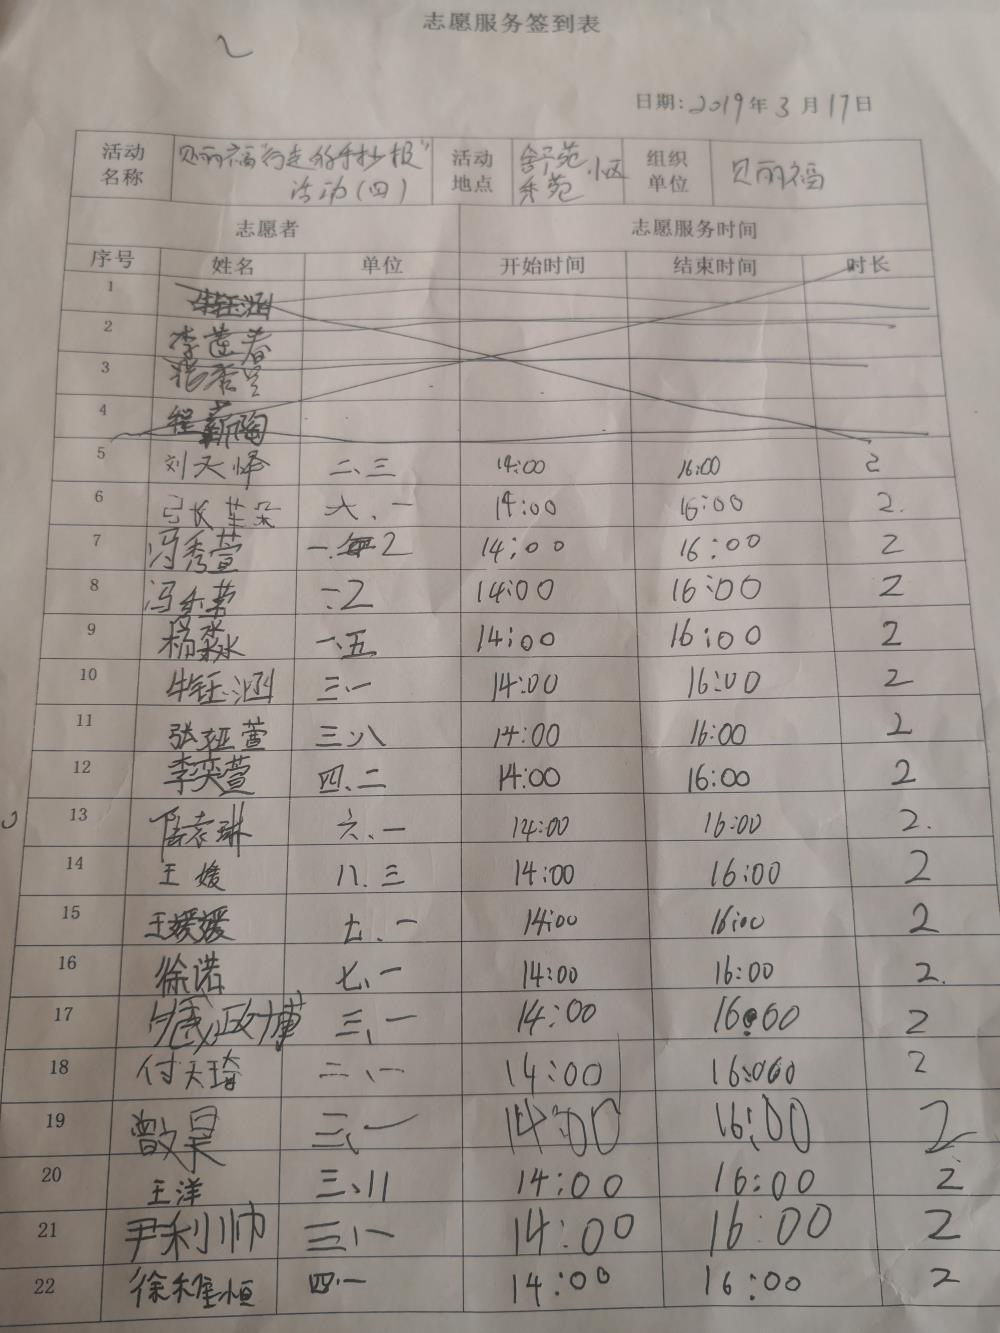 志愿服务签到表
日期：2019年3月17日
活动名称 贝丽福"行走的手抄报"活动（四） 活动地点 舒苑 乐苑 小区 组织单位 贝丽福
志愿者 志愿服务时间
序号 姓名 单位 开始时间 结束时间 时长
1 牛钰涵
2
3
4 程薪陶
5 刘天怿 二、三 14:00 16:00 2
6 六、一 14:00 16:00 2.
7 冯秀萱 一、2 14:00 16:00 2
8 二2 14:00 16:00 2
9 杨淼冰 一、五 14:00 16:00 2
10 牛钰涵 三、一 14:00 16:00 2
11 张娅萱 三、八 14:00 16:00 2
12 李奕萱 四、二 14:00 16:00 2
13 六、一 14:00 16:00 2.
14 王媛 八.三 14:00 16:00 2
15 王媛媛 七、一 14:00 16:00 2
16 徐诺 七、一 14:00 16:00 2.
17 三、一 14:00 16:00 2
18 付天琦 二、一 14:00 16:00 2
19 三、一 14:00 16:00 2
20 王洋 三、11 14:00 16:00 2
21 尹利帅 三、八 14:00 16:00 2
22 四、一 14:00 16:00 2